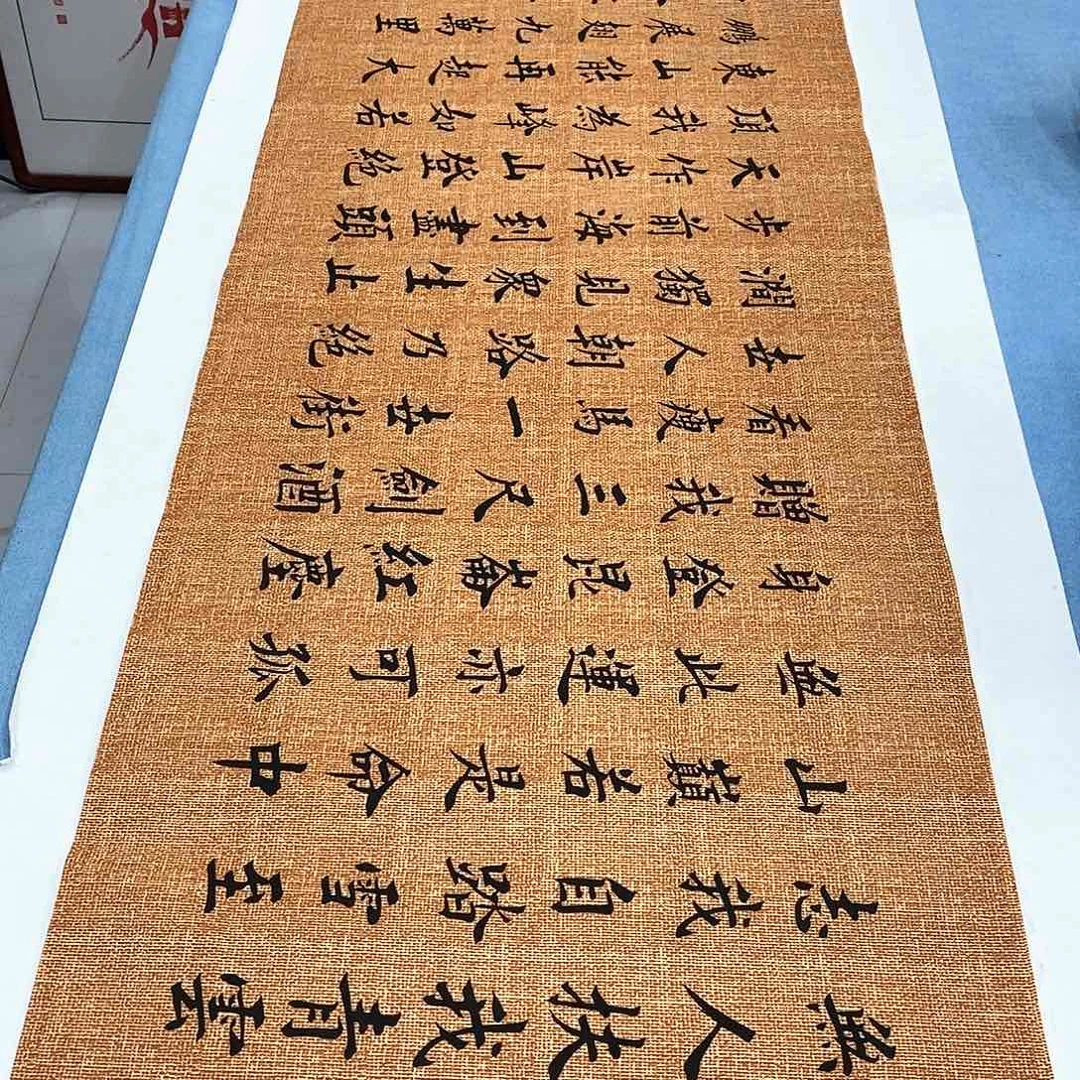 無人扶我青雲
志我自踏雪至
山巔若是命中
無此運亦可孤
身登昆崙紅塵
贈我三尺劍酒
看瘦馬一壺街
壺人朝路乃絕
濶獨見眾生止
步前海到盡頭
天作岸山登絕
頂我為峰如若
東山能再起大
鵬展翅九萬里